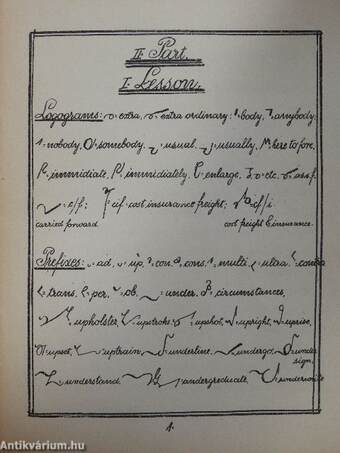 II. Part.
I. Lesson.
Logograms: extra, extra ordinary: body, anybody:
nobody, somebody. usual. usually, here to fore,
immidiate, immidiately. enlarge, etc. ass. f.
c/f: cif. cost insurance freight; cf/i
carried forward cost freight & insurance.
Prefixes: ad. up. con. cons. multi. ultra. contra
trans. per. ob. under. circumstances,
upholster, upstroke upshot, upright, uprise,
upset, uptrain, underline, undergo, under
sign.
understand. undergreduate, underwrite
1.
Antikvárium.hu
antikvarium.hu